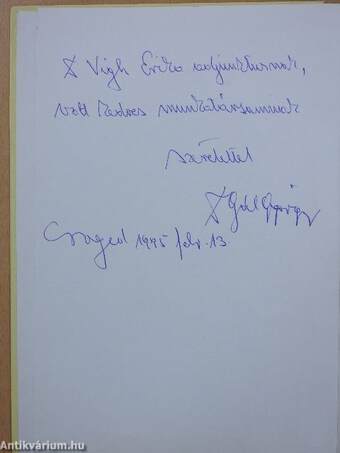 Dr Vigh Erika adjunktusnak,
volt kedves munkatársamnak
szeretettel
Dr Gál György
Szeged 1995 febr. 13
Antikvárium.hu